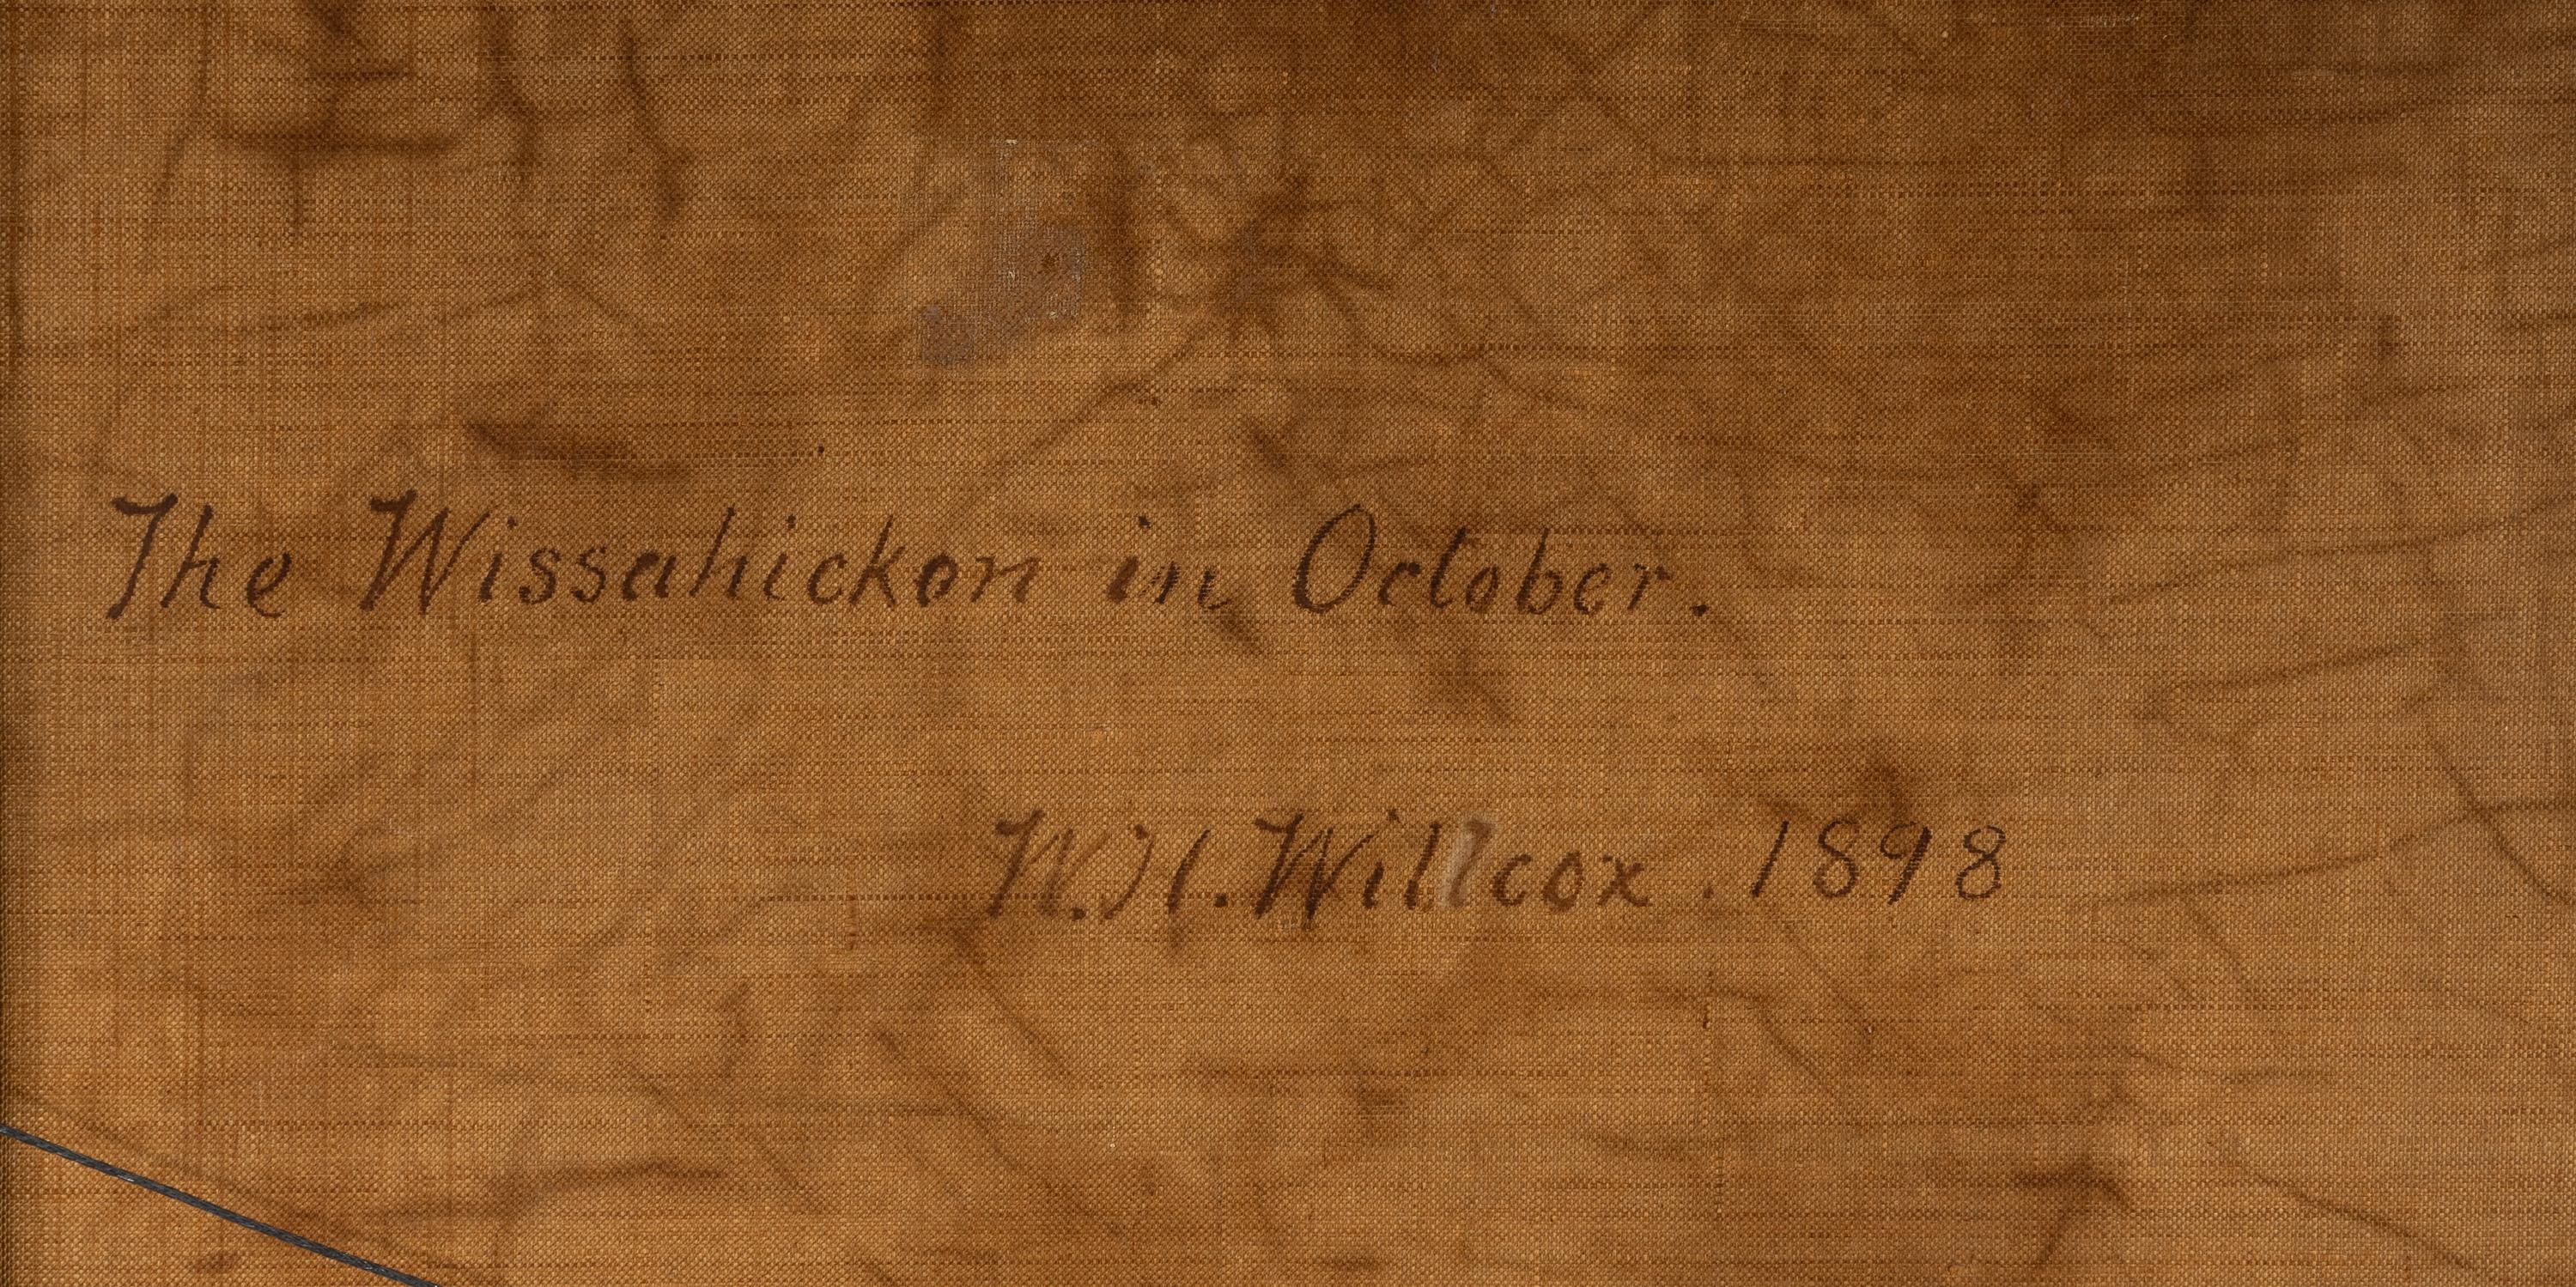 The Wissahickon in October.
W.H. Willcox. 1898